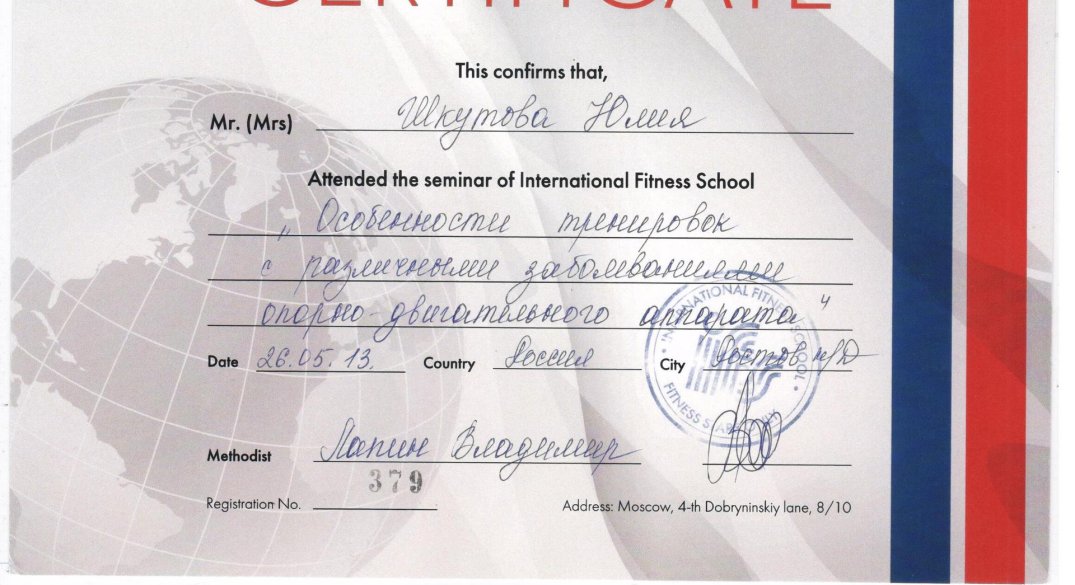 CERTIFICATE
This confirms that,
Mr. (Mrs) Шкутова Юлия
Attended the seminar of International Fitness School
„ Особенности тренировок
с различными заболеваниями
опорно-двигательного аппарата "
Date 26.05.13. Country Россия City Ростов н/Д
INTERNATIONAL FITNESS SCHOOL
FITNESS
Methodist Лапин Владимир
379
Registration No.
Address: Moscow, 4-th Dobryninskiy lane, 8/10